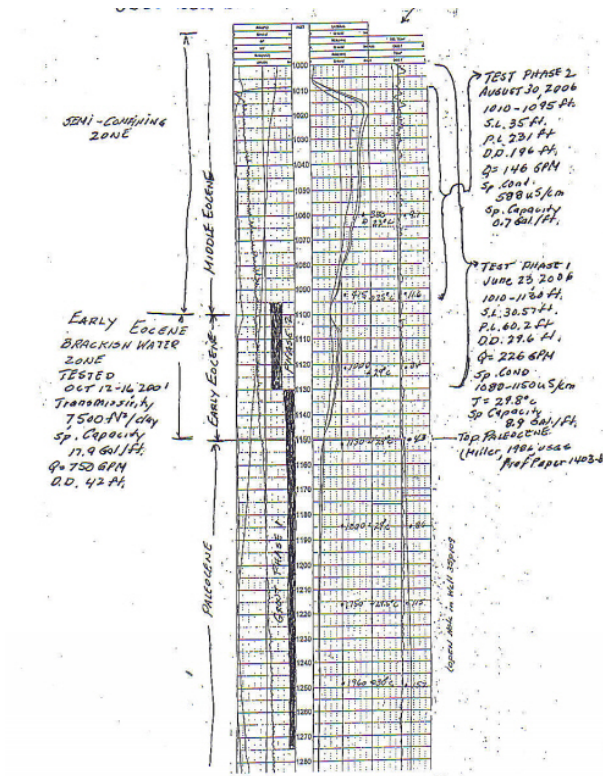 SEMI-CONFINING
ZONE
MIDDLE EOCENE
EARLY EOCENE
BRACKISH WATER
ZONE
TESTED
OCT 12-16 2001
Transmissivity
7500 ft²/day
Sp. Capacity
17.9 Gal/ft.
Q= 750 GPM
D.D. 42 ft.
EARLY EOCENE
PALEOCENE
PHASE 2
GROUT PHASE 1
1000
1010
1020
1030
1040
1050
1060
1070
1080
1090
1100
1110
1120
1130
1140
1150
1160
1170
1180
1190
1200
1210
1220
1230
1240
1250
1260
1270
1280
TEST PHASE 2
AUGUST 30, 2006
1010-1095 ft.
S.L. 35 ft.
P.L. 231 ft
D.D. 196 ft.
Q= 146 GPM
Sp. Cond.
588 uS/cm
Sp. Capacity
0.7 Gal./ft.
TEST PHASE 1
June 23 2006
1010-1130 ft.
S.L. 30.57 ft.
P.L. 60.2 ft
D.D. 29.6 ft.
Q= 226 GPM
Sp. COND
1080-1150 uS/cm
T= 29.8°c
Sp Capacity
8.9 Gal/ft.
Top PALEOCENE
(Miller, 1986 USGS
Prof Paper 1403-B